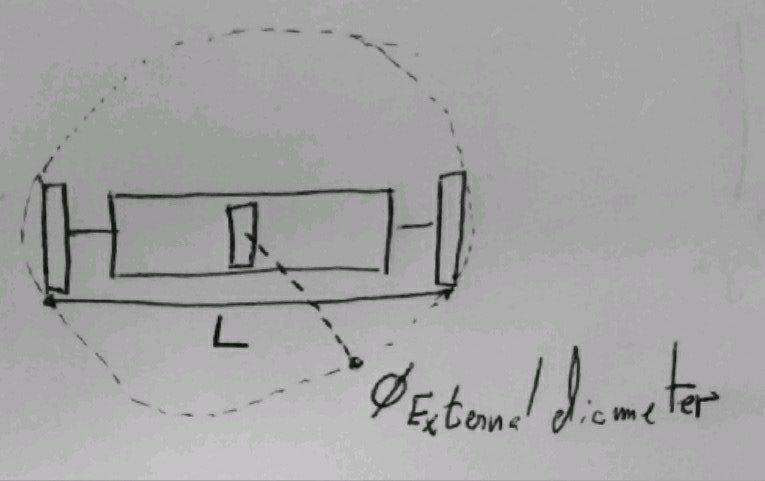 L
Ø External diameter